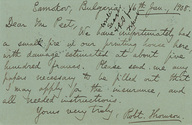 Samokov, Bulgaria, 16th Jan., 1908.
Dear Mr. Peet,
We have unfortunately had
a small fire at our building here,
with damage estimated at about five
hundred francs. Please send me any
papers necessary to be filled out that
I may apply for the insurance, and
all needed instructions.
Yours very truly,
Robt. Thomson